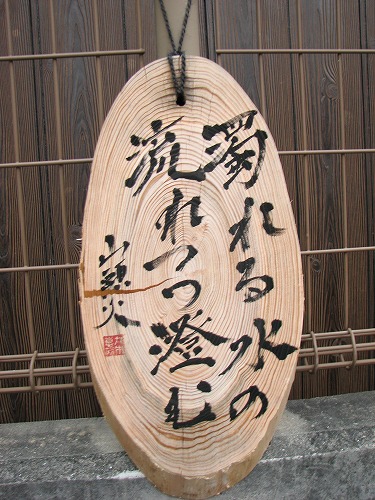 濁れる水の
流れつつ澄む
山頭火